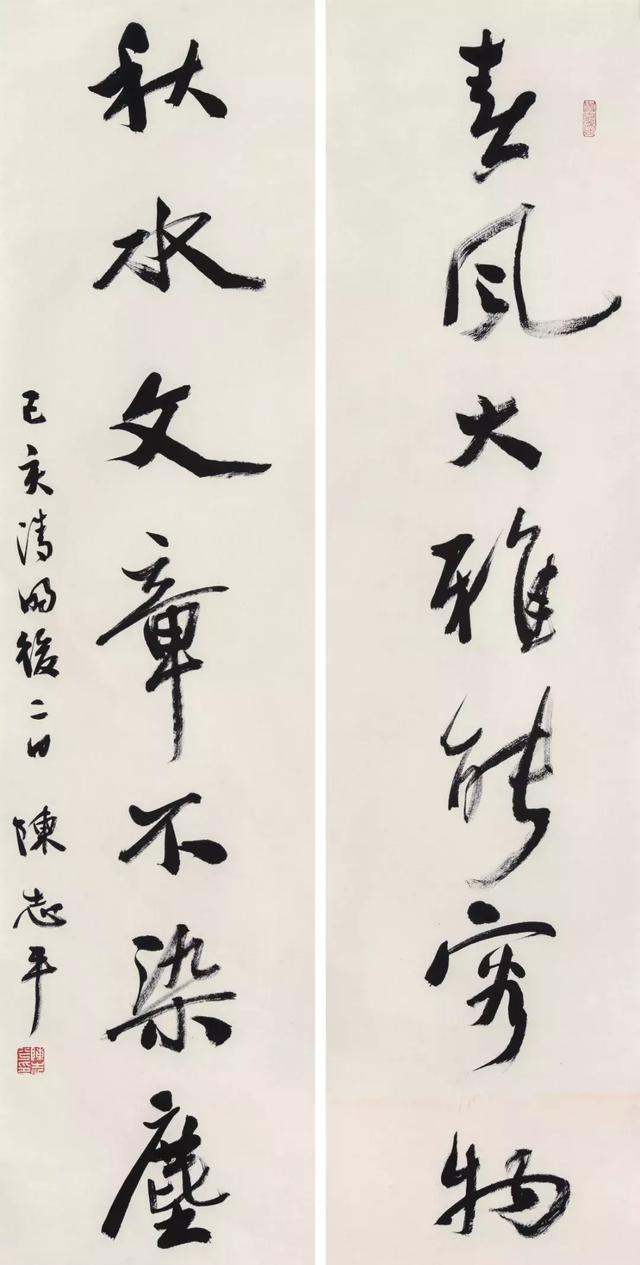 春风大雅能容物
秋水文章不染塵
己亥清明後二日 陳志平